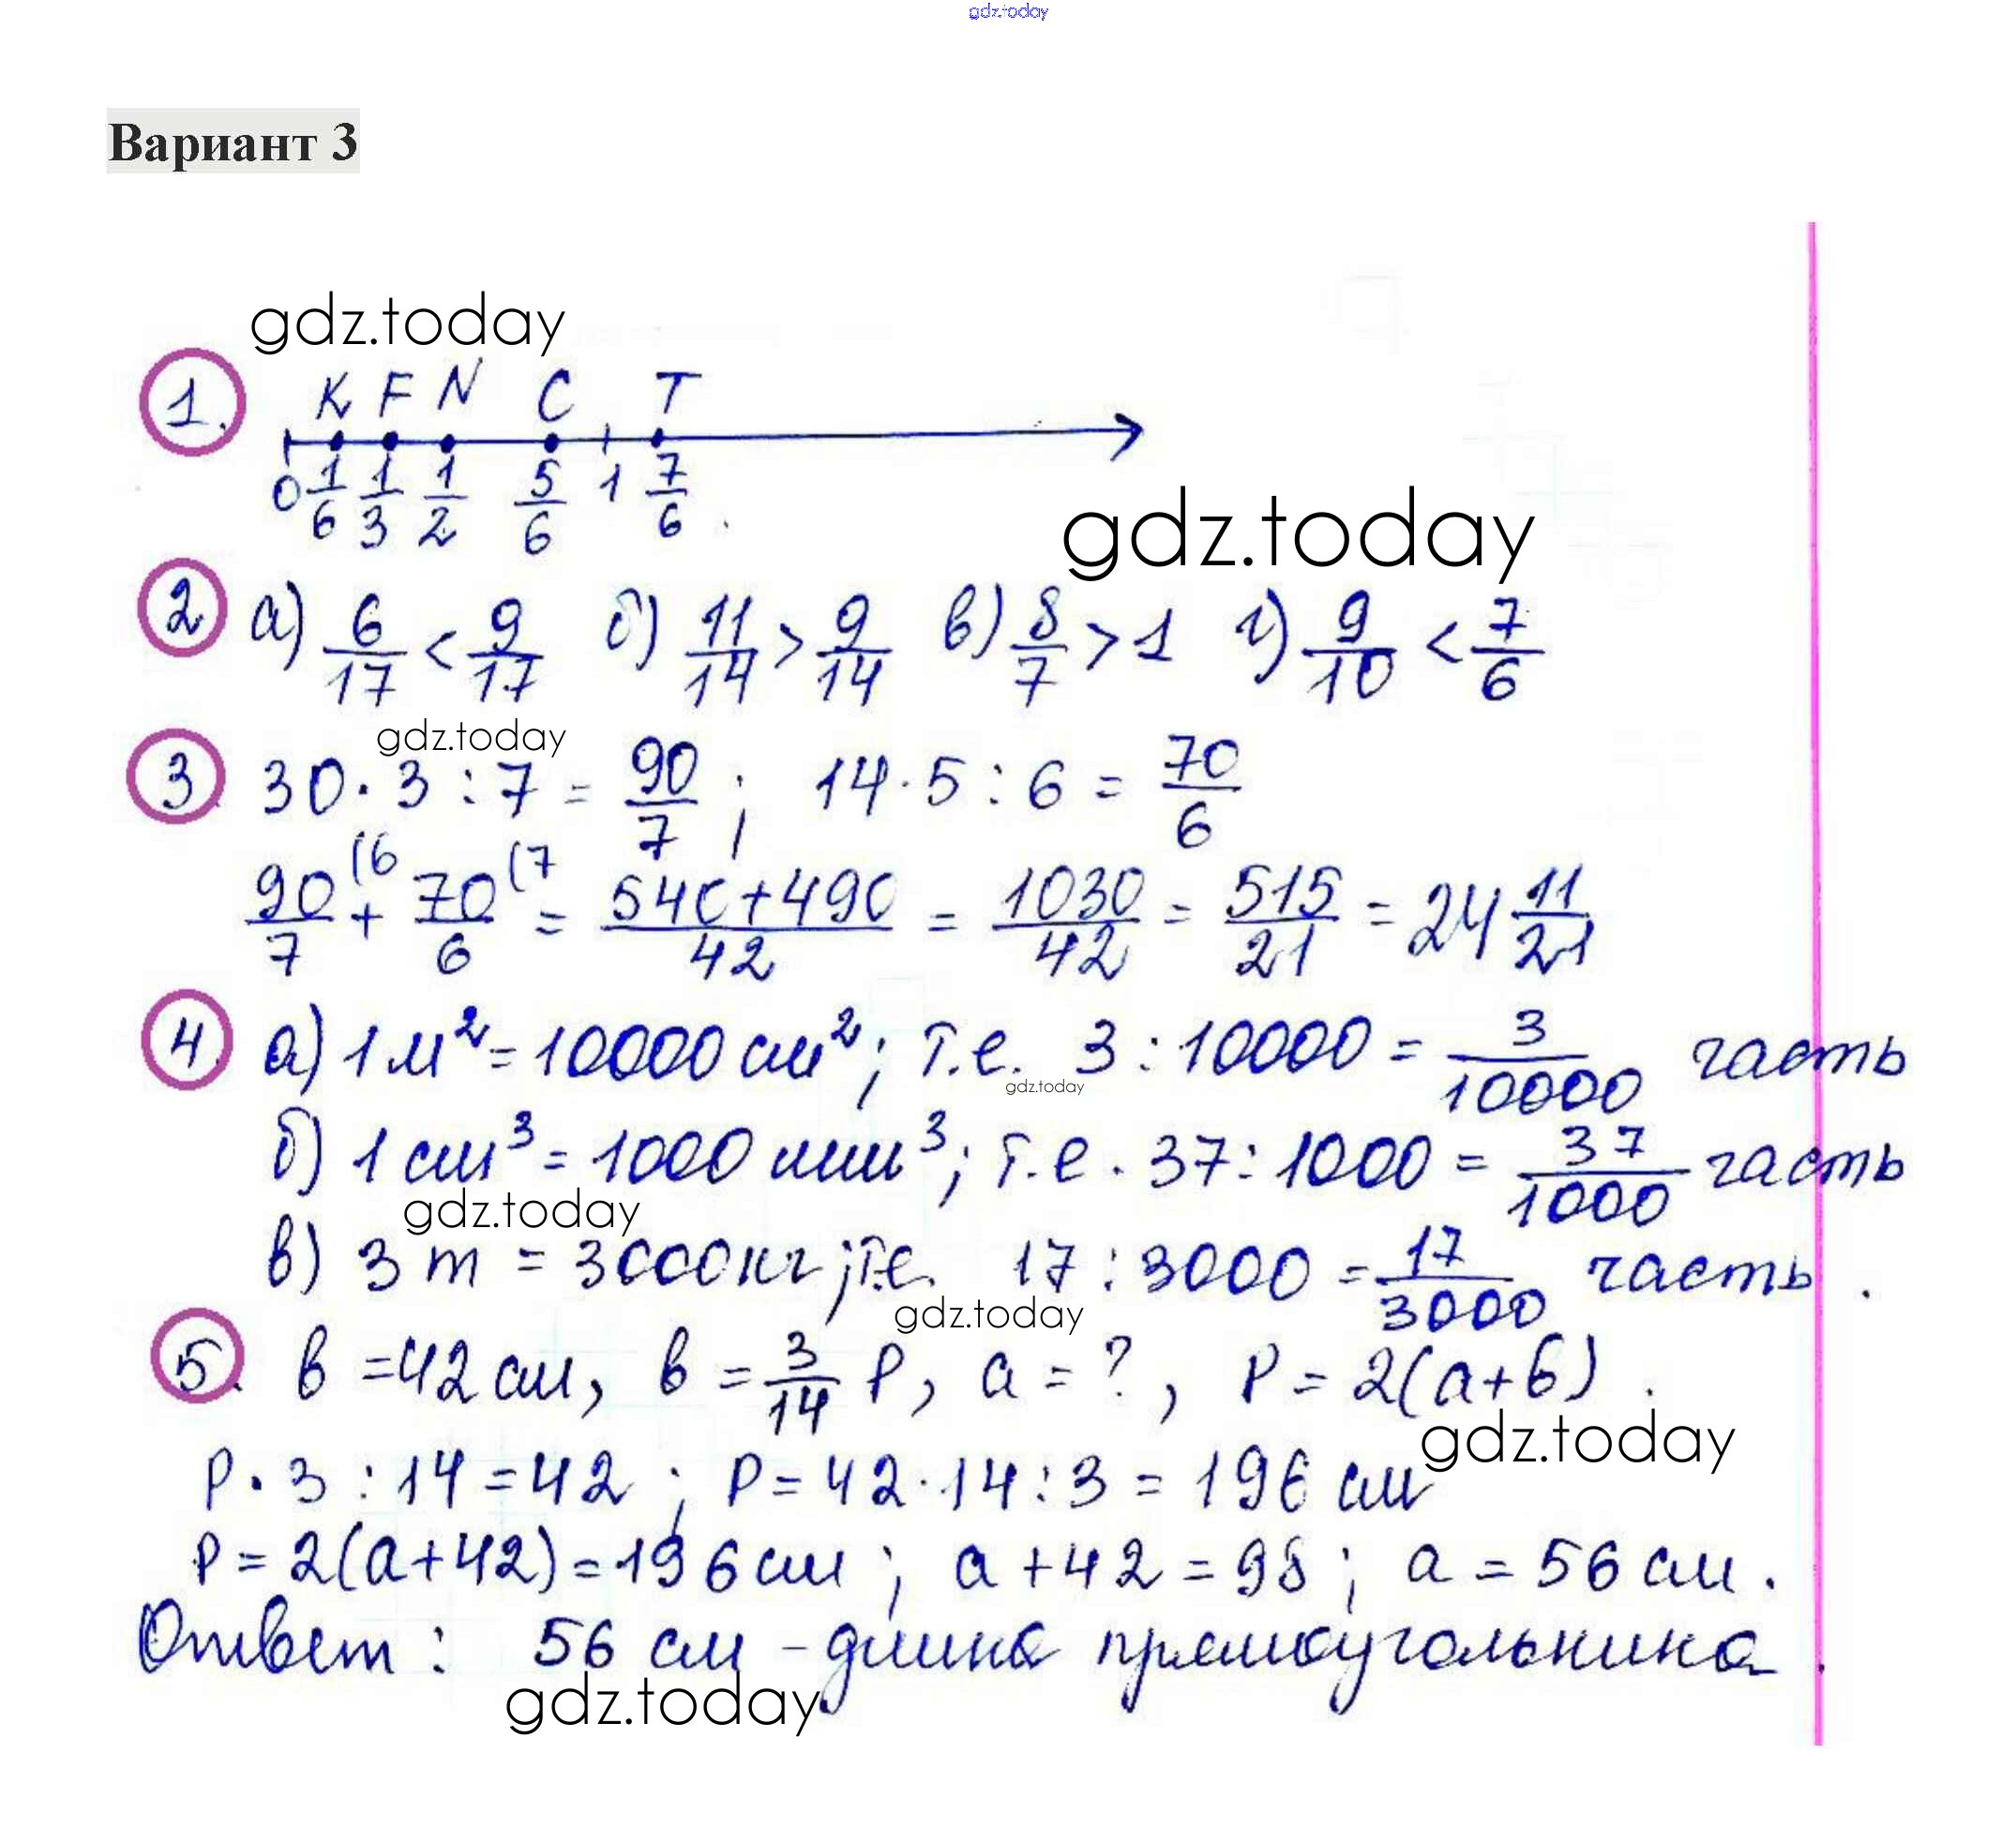 gdz.today
Вариант 3
gdz.today
1. K F N C T
0 1/6 1/3 1/2 5/6 1 7/6
gdz.today
2 а) 6/17 < 9/17 б) 11/14 > 9/14 в) 8/7 > 1 г) 9/10 < 7/6
gdz.today
3. 30 · 3 : 7 = 90/7 ; 14 · 5 : 6 = 70/6
90/7 (6 + 70/6 (7 = 540+490/42 = 1030/42 = 515/21 = 24 11/21
4. а) 1 м² = 10000 см² ; т.е. 3 : 10000 = 3/10000 часть
gdz.today
б) 1 см³ = 1000 мм³ ; т.е. 37 : 1000 = 37/1000 часть
gdz.today
в) 3 т = 3000 кг ; т.е. 17 : 3000 = 17/3000 часть .
gdz.today
5. в = 42 см, в = 3/14 P, а = ? , P = 2(а+в) .
gdz.today
P · 3 : 14 = 42 ; P = 42 · 14 : 3 = 196 см
P = 2(а+42) = 196 см ; а + 42 = 98 ; а = 56 см .
Ответ : 56 см - длина прямоугольника .
gdz.today